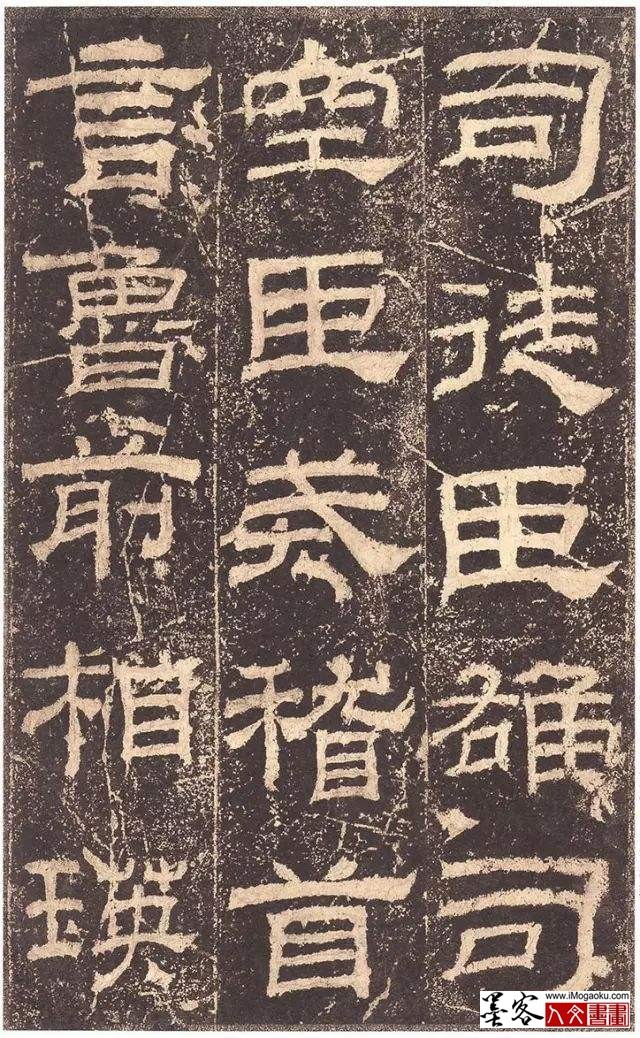 司徒臣雄司
空臣戒稽首
言魯前相瑛
墨客
www.iMogaoku.com
人文書畫